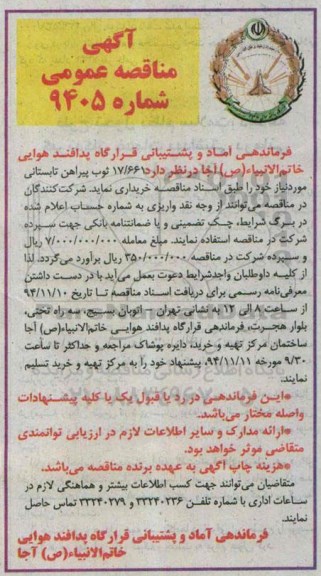 آگهی
مناقصه عمومی
شماره ۹۴۰۵
فرماندهی آماد و پشتیبانی قرارگاه پدافند هوایی
خاتم‌الانبیاء(ص) آجا در نظر دارد ۱۷/۶۶۱ ثوب پیراهن تابستانی
موردنیاز خود را طبق اسناد مناقصه خریداری نماید. شرکت‌کنندگان
در مناقصه می‌توانند از وجه نقد واریزی به شماره حساب اعلام شده
در برگ شرایط، چک تضمینی و یا ضمانتنامه بانکی جهت سپرده
شرکت در مناقصه استفاده نمایند. مبلغ معامله ۷/۰۰۰/۰۰۰/۰۰۰ ریال
و سپرده شرکت در مناقصه ۳۵۰/۰۰۰/۰۰۰ ریال برآورد می‌گردد. لذا
از کلیه داوطلبان واجدشرایط دعوت بعمل می‌آید با در دست داشتن
معرفی‌نامه رسمی برای دریافت اسناد مناقصه تا تاریخ ۹۴/۱۱/۱۰
از ساعت ۸ الی ۱۲ به نشانی تهران - اتوبان بسیج، سه راه تختی،
بلوار هجرت، فرماندهی قرارگاه پدافند هوایی خاتم‌الانبیاء(ص) آجا
ساختمان مرکز تهیه و خرید، دایره پوشاک مراجعه و حداکثر تا ساعت
۹/۳۰ مورخه ۹۴/۱۱/۱۱، پیشنهاد خود را به مرکز تهیه و خرید تسلیم
نمایند.
*این فرماندهی در رد یا قبول یک یا کلیه پیشنهادات
واصله مختار می‌باشد.
*ارائه مدارک و سایر اطلاعات لازم در ارزیابی توانمندی
متقاضی موثر خواهد بود.
*هزینه چاپ آگهی به عهده برنده مناقصه می‌باشد.
متقاضیان می‌توانند جهت کسب اطلاعات بیشتر و هماهنگی لازم در
ساعات اداری با شماره تلفن ۳۳۲۴۰۲۳۶ و ۳۳۲۴۰۲۷۹ تماس حاصل
نمایند.
فرماندهی آماد و پشتیبانی قرارگاه پدافند هوایی
خاتم‌الانبیاء(ص) آجا